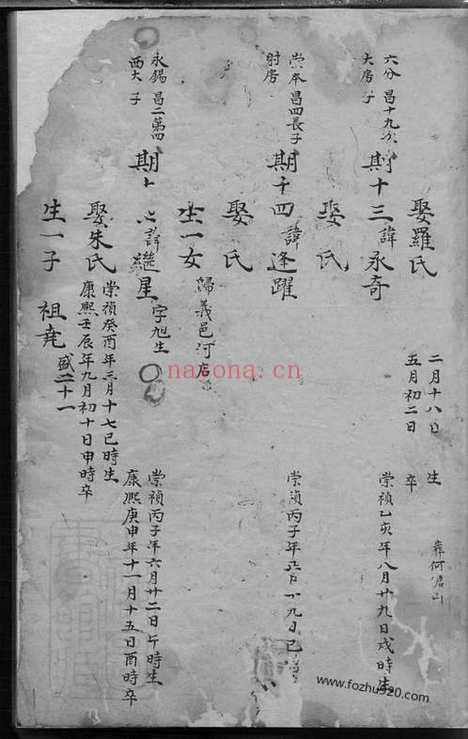 娶羅氏 二月十八日 生
五月初二日 卒
六分 昌十九
大房 子
期十三 諱永奇 崇禎乙亥年八月廿九日戌時生
娶氏
崇本昌四長子
財房
期十四 諱逢躍 崇禎丙子年 九日巳
娶氏
生一女 歸義邑河店
永錫 昌二第四
西大 子
期十 諱繼星 字旭生 崇禎丙子年六月廿二日午時生
康熙庚申年十一月十五日酉時卒
娶朱氏 崇禎癸酉年三月十七巳時生
康熙壬辰年九月初十日申時卒
生一子 祖堯 盛二十一
nayona.cn
www.fozhu920.com